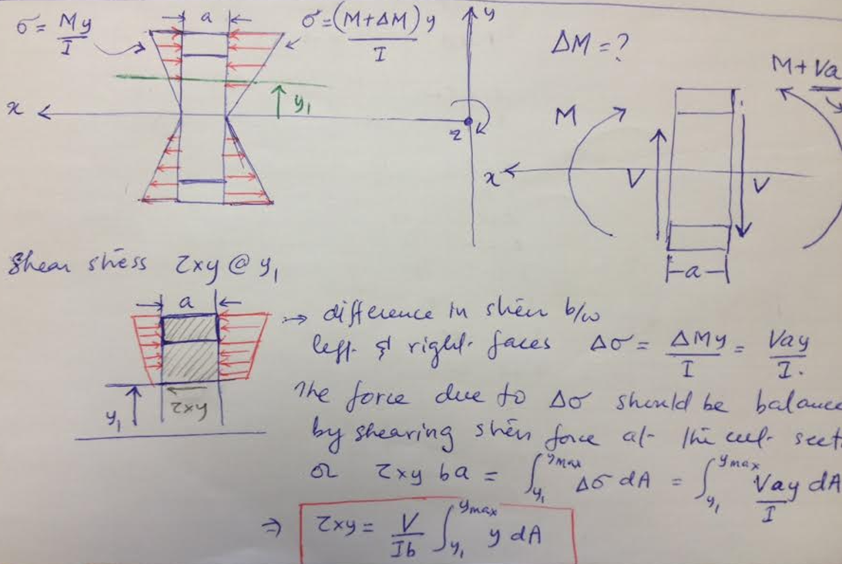 σ = My/I
a
σ = (M+ΔM)y/I
y
ΔM = ?
M + Va
x
y₁
z
M
x
V
V
a
Shear stress τxy @ y₁
a
→ difference in
left & right faces Δσ = ΔMy/I = Vay/I.
τxy
y₁
The force due to Δσ should be balance
by shearing force at the cut sect
or τxy ba = ∫y₁^ymax Δσ dA = ∫y₁^ymax Vay/I dA
⇒ τxy = V/Ib ∫y₁^ymax y dA